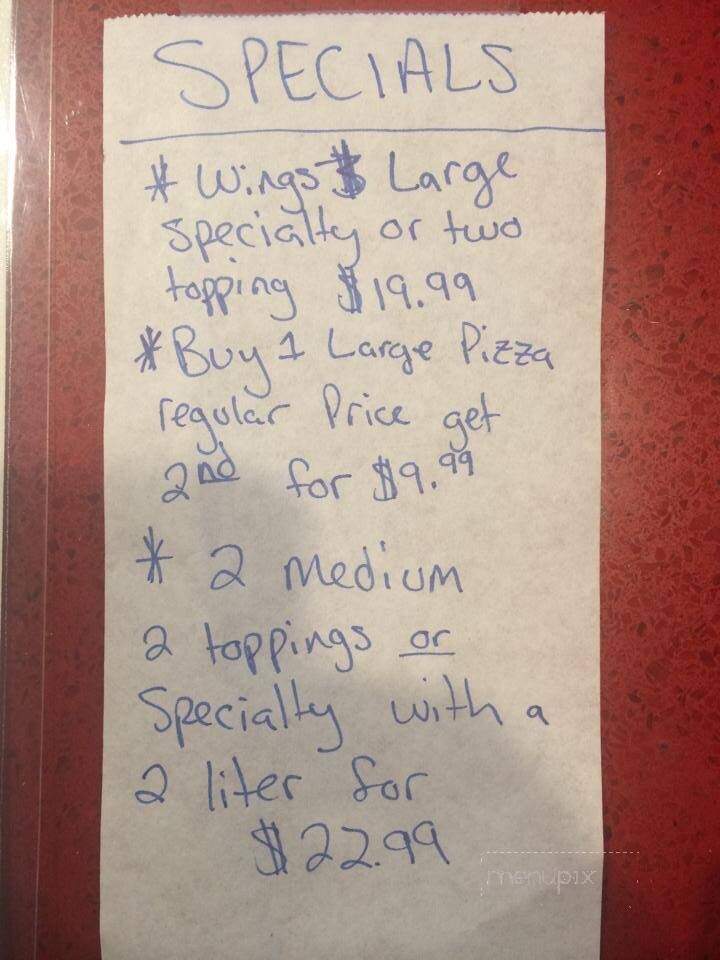 SPECIALS
* Wings $ Large
specialty or two
topping $19.99
* Buy 1 Large Pizza
regular Price get
2nd for $9.99
* 2 medium
2 toppings or
Specialty with a
2 liter for
$22.99
menupix